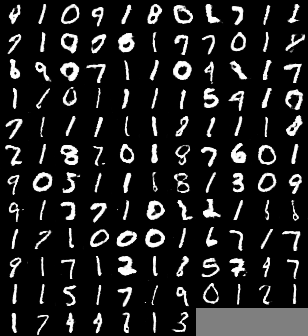 4 1 0 9 1 8 0 6 7 1 2
7 1 0 0 0 1 7 7 0 1 2
6 9 0 7 1 1 0 9 8 1 7
1 1 0 1 1 1 1 5 9 1 0
7 1 1 1 1 1 8 1 1 1 8
2 1 8 7 0 1 8 7 6 0 1
9 0 5 1 1 1 8 1 3 0 9
9 1 7 7 1 0 2 2 1 1 8
1 7 1 0 0 0 1 6 7 1 7
9 1 7 1 2 1 8 5 7 4 7
1 1 5 1 7 1 9 0 1 2 1
1 7 4 4 8 1 3